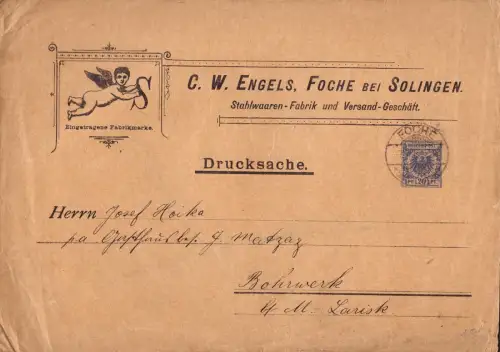 C. W. ENGELS, FOCHE BEI SOLINGEN.
Stahlwaaren-Fabrik und Versand-Geschäft.
S
Eingetragene Fabrikmarke.
FOCHE
Drucksache.
Herrn Josef Hoika
pa Gasthausbes. J Matzaz
Bohrwerk